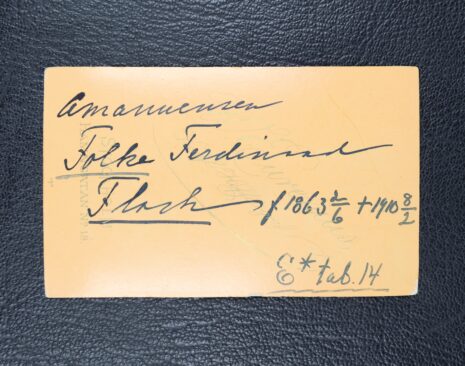 Amanuensen
Folke Ferdinand
Flach f 1863 2/6 + 1910 8/2
E* tab. 14